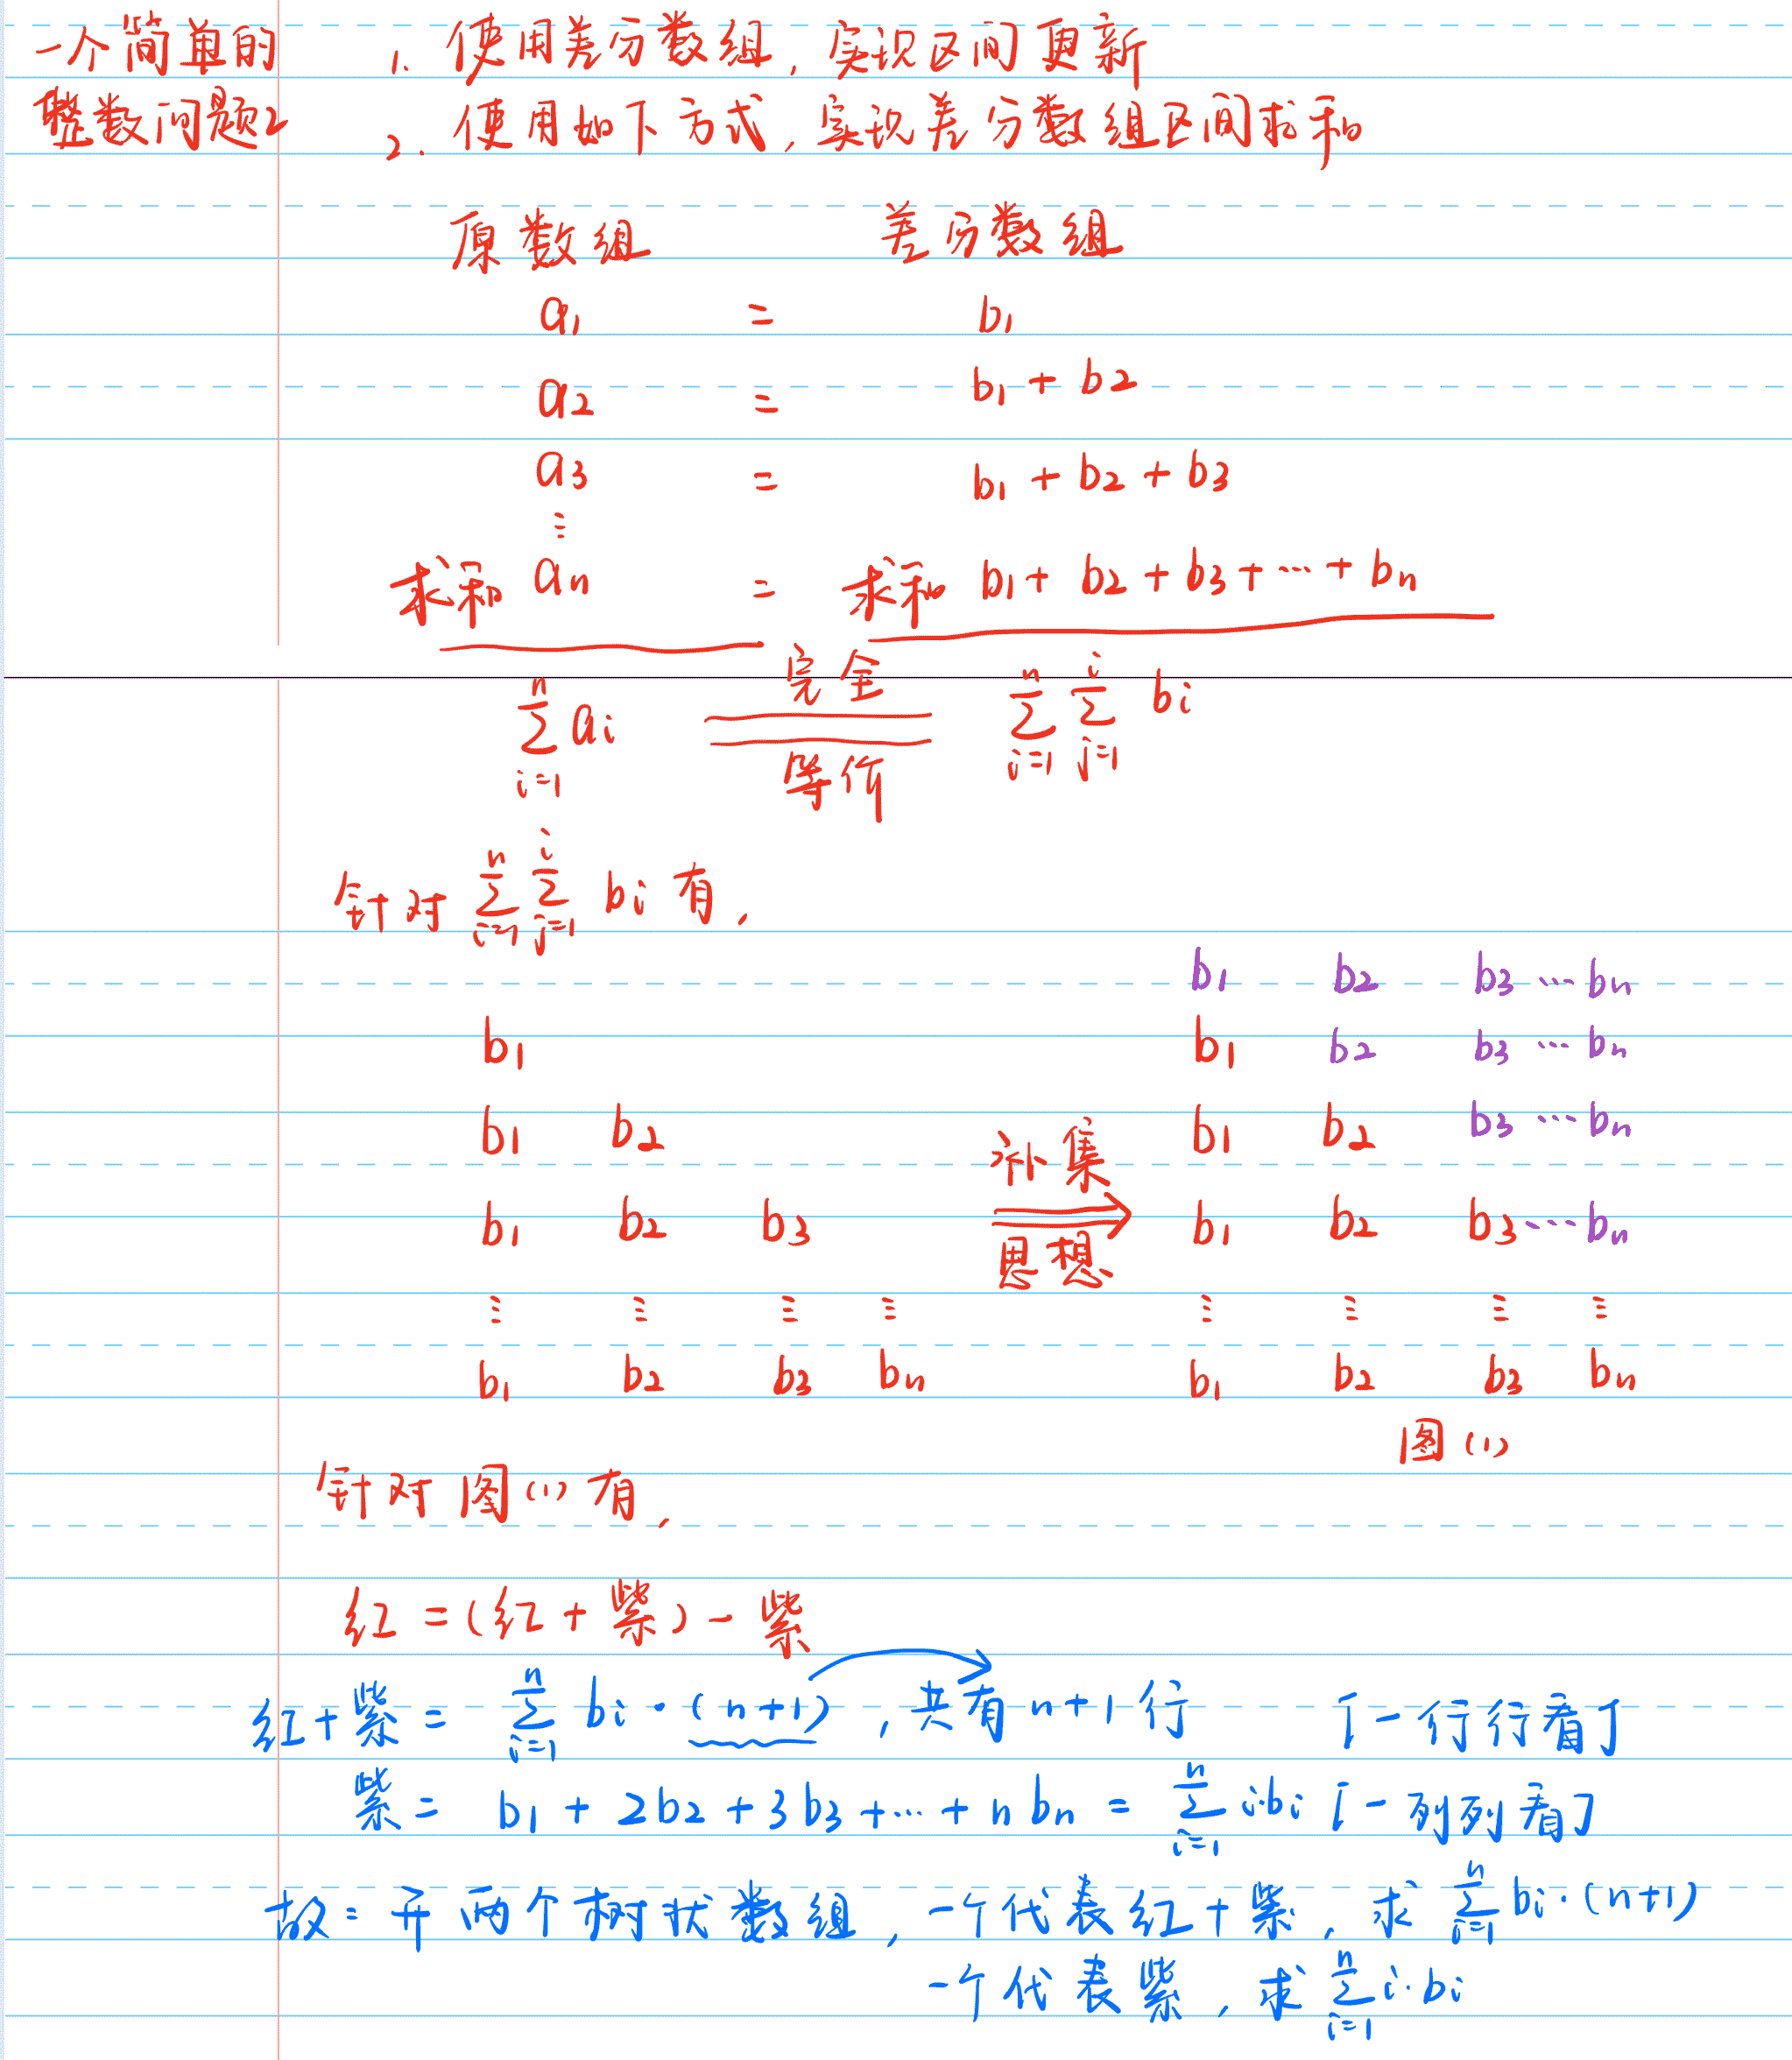 一个简单的
整数问题2
1. 使用差分数组, 实现区间更新
2. 使用如下方式, 实现差分数组区间求和
原数组 差分数组
a₁ = b₁
a₂ = b₁ + b₂
a₃ = b₁ + b₂ + b₃
⋮
求和 aₙ = 求和 b₁ + b₂ + b₃ + ⋯ + bₙ
∑ⁿᵢ₌₁ aᵢ 完全等价 ∑ⁿᵢ₌₁ ∑ⁱⱼ₌₁ bᵢ
针对 ∑ⁿᵢ₌₁ ∑ⁱⱼ₌₁ bᵢ 有,
b₁
b₁ b₂
b₁ b₂ b₃
⋮ ⋮ ⋮ ⋮
b₁ b₂ b₃ bₙ
补集
思想
b₁ b₂ b₃ ⋯ bₙ
b₁ b₂ b₃ ⋯ bₙ
b₁ b₂ b₃ ⋯ bₙ
b₁ b₂ b₃ ⋯ bₙ
⋮ ⋮ ⋮ ⋮
b₁ b₂ b₃ bₙ
图(1)
针对图(1)有,
红 = (红 + 紫) - 紫
红+紫 = ∑ⁿᵢ₌₁ bᵢ · (n+1) , 共有 n+1 行 [一行行看]
紫 = b₁ + 2b₂ + 3b₃ + ⋯ + nbₙ = ∑ⁿᵢ₌₁ i·bᵢ [一列列看]
故: 开两个树状数组, 一个代表红+紫, 求 ∑ⁿᵢ₌₁ bᵢ·(n+1)
一个代表紫, 求 ∑ⁿᵢ₌₁ i·bᵢ